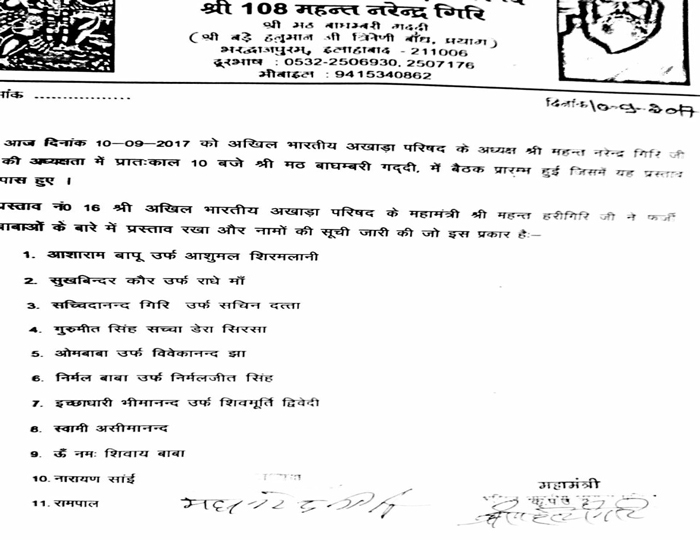 श्री 108 महन्त नरेन्द्र गिरि
श्री मठ बाघम्बरी गद्दी
( श्री बड़े हनुमान जी त्रिवेणी बाँध, प्रयाग )
भरद्वाजपुरम्, इलाहाबाद - 211006
दूरभाष : 0532-2506930, 2507176
मोबाइल : 9415340862
दिनांक 10-9-2017
आज दिनांक 10-09-2017 को अखिल भारतीय अखाड़ा परिषद के अध्यक्ष श्री महन्त नरेन्द्र गिरि जी
की अध्यक्षता में प्रातःकाल 10 बजे श्री मठ बाघम्बरी गद्दी, में बैठक प्रारम्भ हुई जिसमें यह प्रस्ताव
पास हुए ।
प्रस्ताव नं0 16 श्री अखिल भारतीय अखाड़ा परिषद के महामंत्री श्री महन्त हरीगिरि जी ने फर्जी
बाबाओं के बारे में प्रस्ताव रखा और नामों की सूची जारी की जो इस प्रकार है:-
1. आशाराम बापू उर्फ आशुमल शिरमलानी
2. सुखबिन्दर कौर उर्फ राधे माँ
3. सच्चिदानन्द गिरि उर्फ सचिन दत्ता
4. गुरुमीत सिंह सच्चा डेरा सिरसा
5. ओमबाबा उर्फ विवेकानन्द झा
6. निर्मल बाबा उर्फ निर्मलजीत सिंह
7. इच्छाधारी भीमानन्द उर्फ शिवमूर्ति द्विवेदी
8. स्वामी असीमानन्द
9. ऊँ नमः शिवाय बाबा
10. नारायण सांई
11. रामपाल
महामंत्री